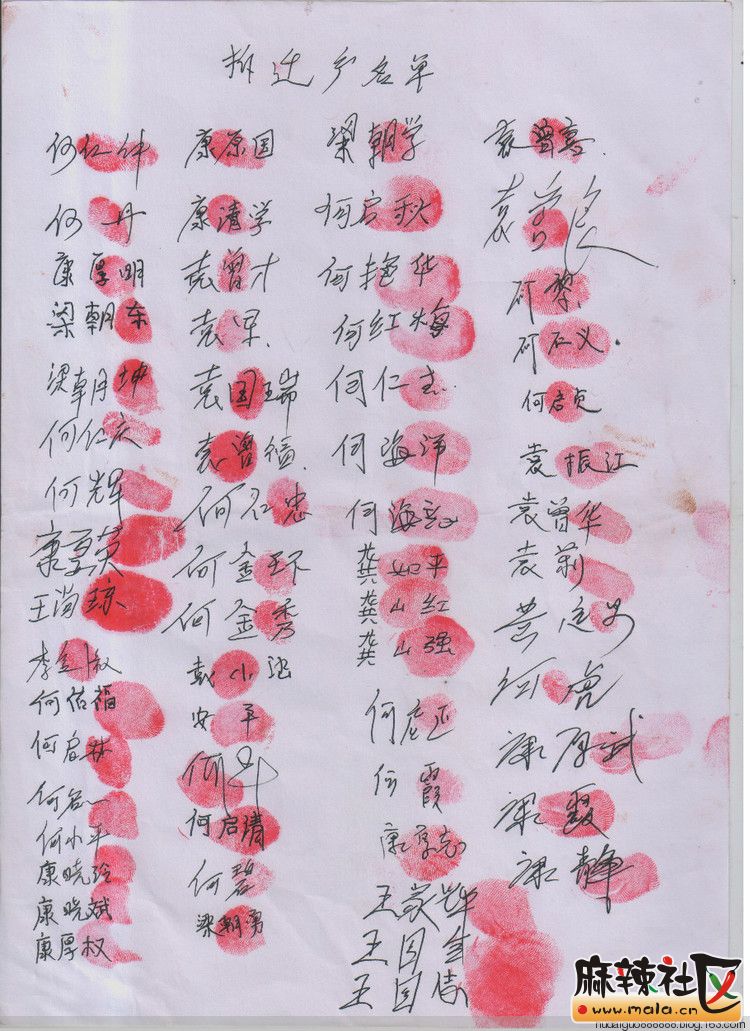 拆迁户名单
何仁钟
何丹
康厚明
梁朝东
梁朝坤
何仁庆
何辉
康厚英
王尚琼
李金淑
何佑福
何启
何名一
何小平
康晓玲
康晓斌
康厚权
康原国
康清学
袁曾才
袁果
袁国瑞
袁曾福
何仁忠
何金环
何金秀
彭小强
安平
何斗
何启清
何碧
梁朝勇
梁朝学
何启秋
何艳华
何红梅
何仁杰
何海沛
何海
龚如平
龚山红
龚山强
何庭
何霞
康厚志
王家辉
王国金
王国
袁曾喜
袁曾
何黎
何仁义
何启贞
袁振江
袁曾华
袁莉
黄
何虎
康厚斌
康霞
康静
麻辣社区
www.mala.cn